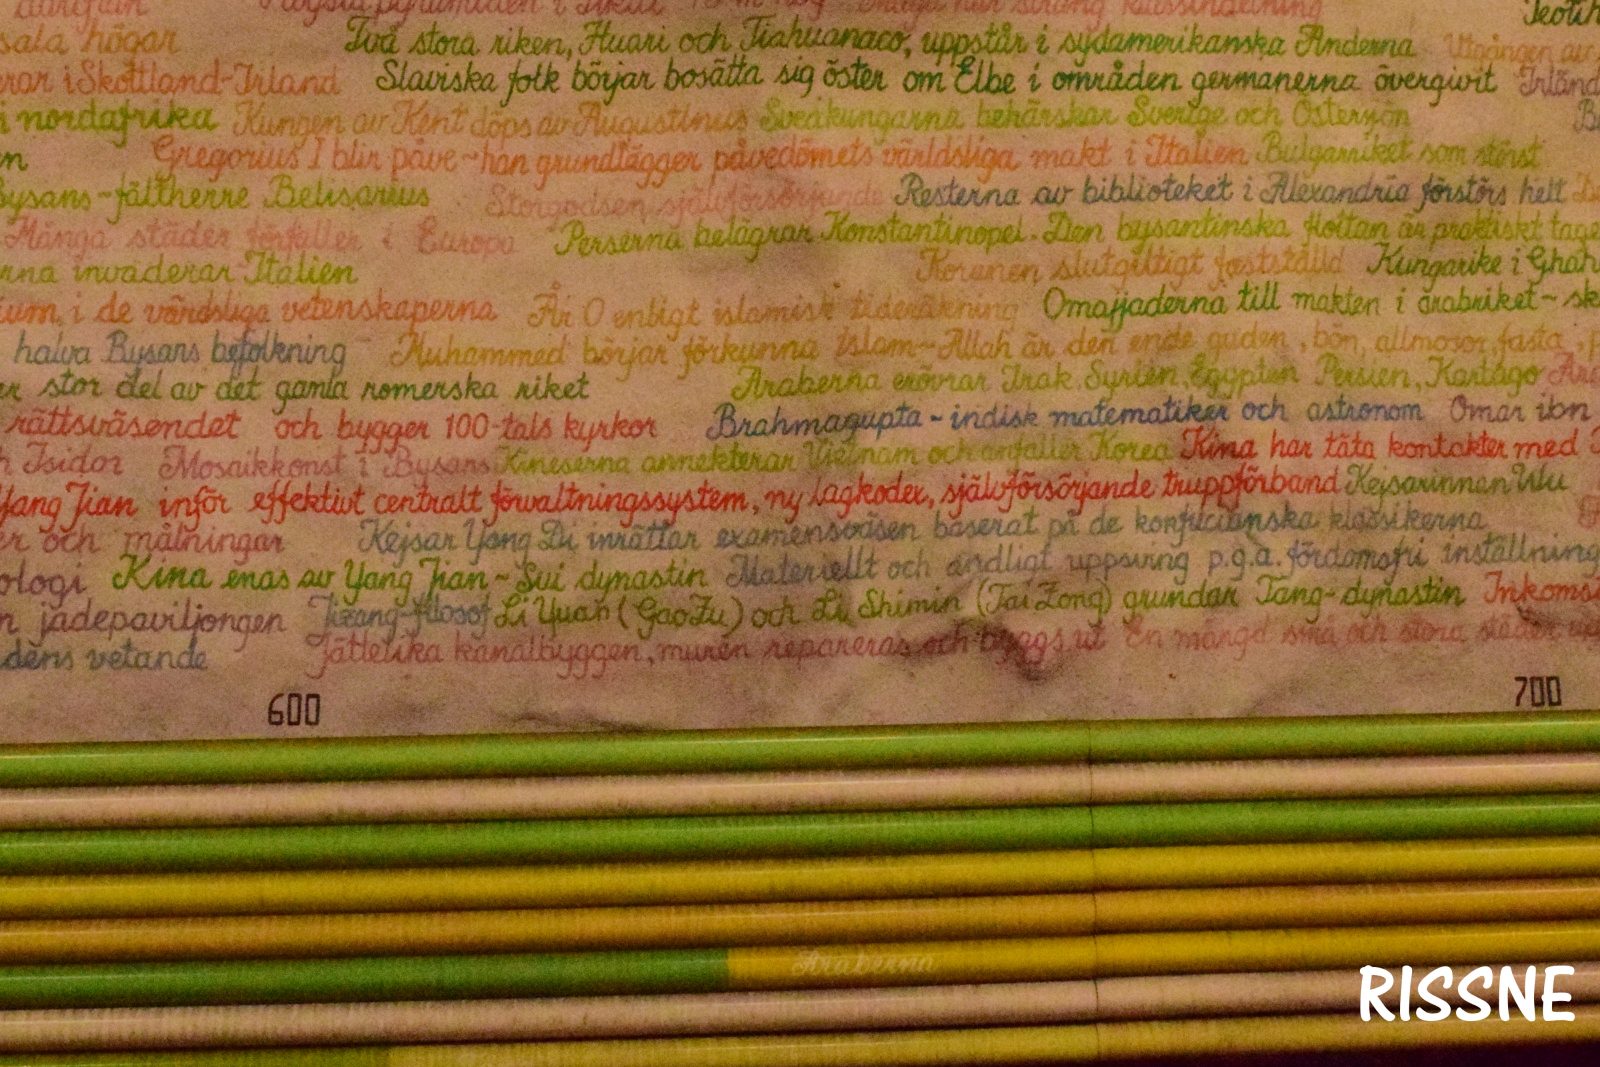 i Tikal
sala högar Två stora riken, Huari och Tiahuanaco, uppstår i sydamerikanska Anderna Utgången av
rar i Skottland-Irland Slaviska folk börjar bosätta sig öster om Elbe i områden germanerna övergivit Irländ
i nordafrika Kungen av Kent döps av Augustinus Sveakungarna behärskar Sverige och Östersjön
n Gregorius I blir påve ~ han grundlägger påvedömets världsliga makt i Italien Bulgarriket som störst
Bysans-fältherre Belisarius Storgodsen självförsörjande Resterna av biblioteket i Alexandria förstörs helt
Många städer förfaller i Europa Perserna belägrar Konstantinopel. Den bysantinska flottan är praktiskt tage
rna invaderar Italien Koranen slutgiltigt fastställd Kungarike i Ghan
ium, i de världsliga vetenskaperna År 0 enligt islamisk tideräkning Omajjaderna till makten i arabriket ~ sk
halva Bysans befolkning Muhammed börjar förkunna islam ~ Allah är den ende guden, bön, allmosor, fasta,
er stor del av det gamla romerska riket Araberna erövrar Irak, Syrien, Egypten Persien, Kartago
rättsväsendet och bygger 100-tals kyrkor Brahmagupta - indisk matematiker och astronom Omar ibn
h Isidor Mosaikkonst i Bysans Kineserna annekterar Vietnam och anfaller Korea Kina har täta kontakter med
Yang Jian inför effektivt centralt förvaltningssystem, ny lagkoder, självförsörjande truppförband Kejsarinnan Wu
er och målningar Kejsar Yang Di inrättar examensväsen baserat på de konfucianska klassikerna
ologi Kina enas av Yang Jian ~ Sui dynastin Materiellt och andligt uppsving p.g.a. fördomsfri inställning
n jadepaviljongen Tizang-filosof Li Yuan (Gao Zu) och Li Shimin (Tai Zong) grundar Tang-dynastin Inkomst
dens vetande Jättelika kanalbyggen, muren repareras och byggs ut En mängd små och stora städer
600 700
Araberna
RISSNE